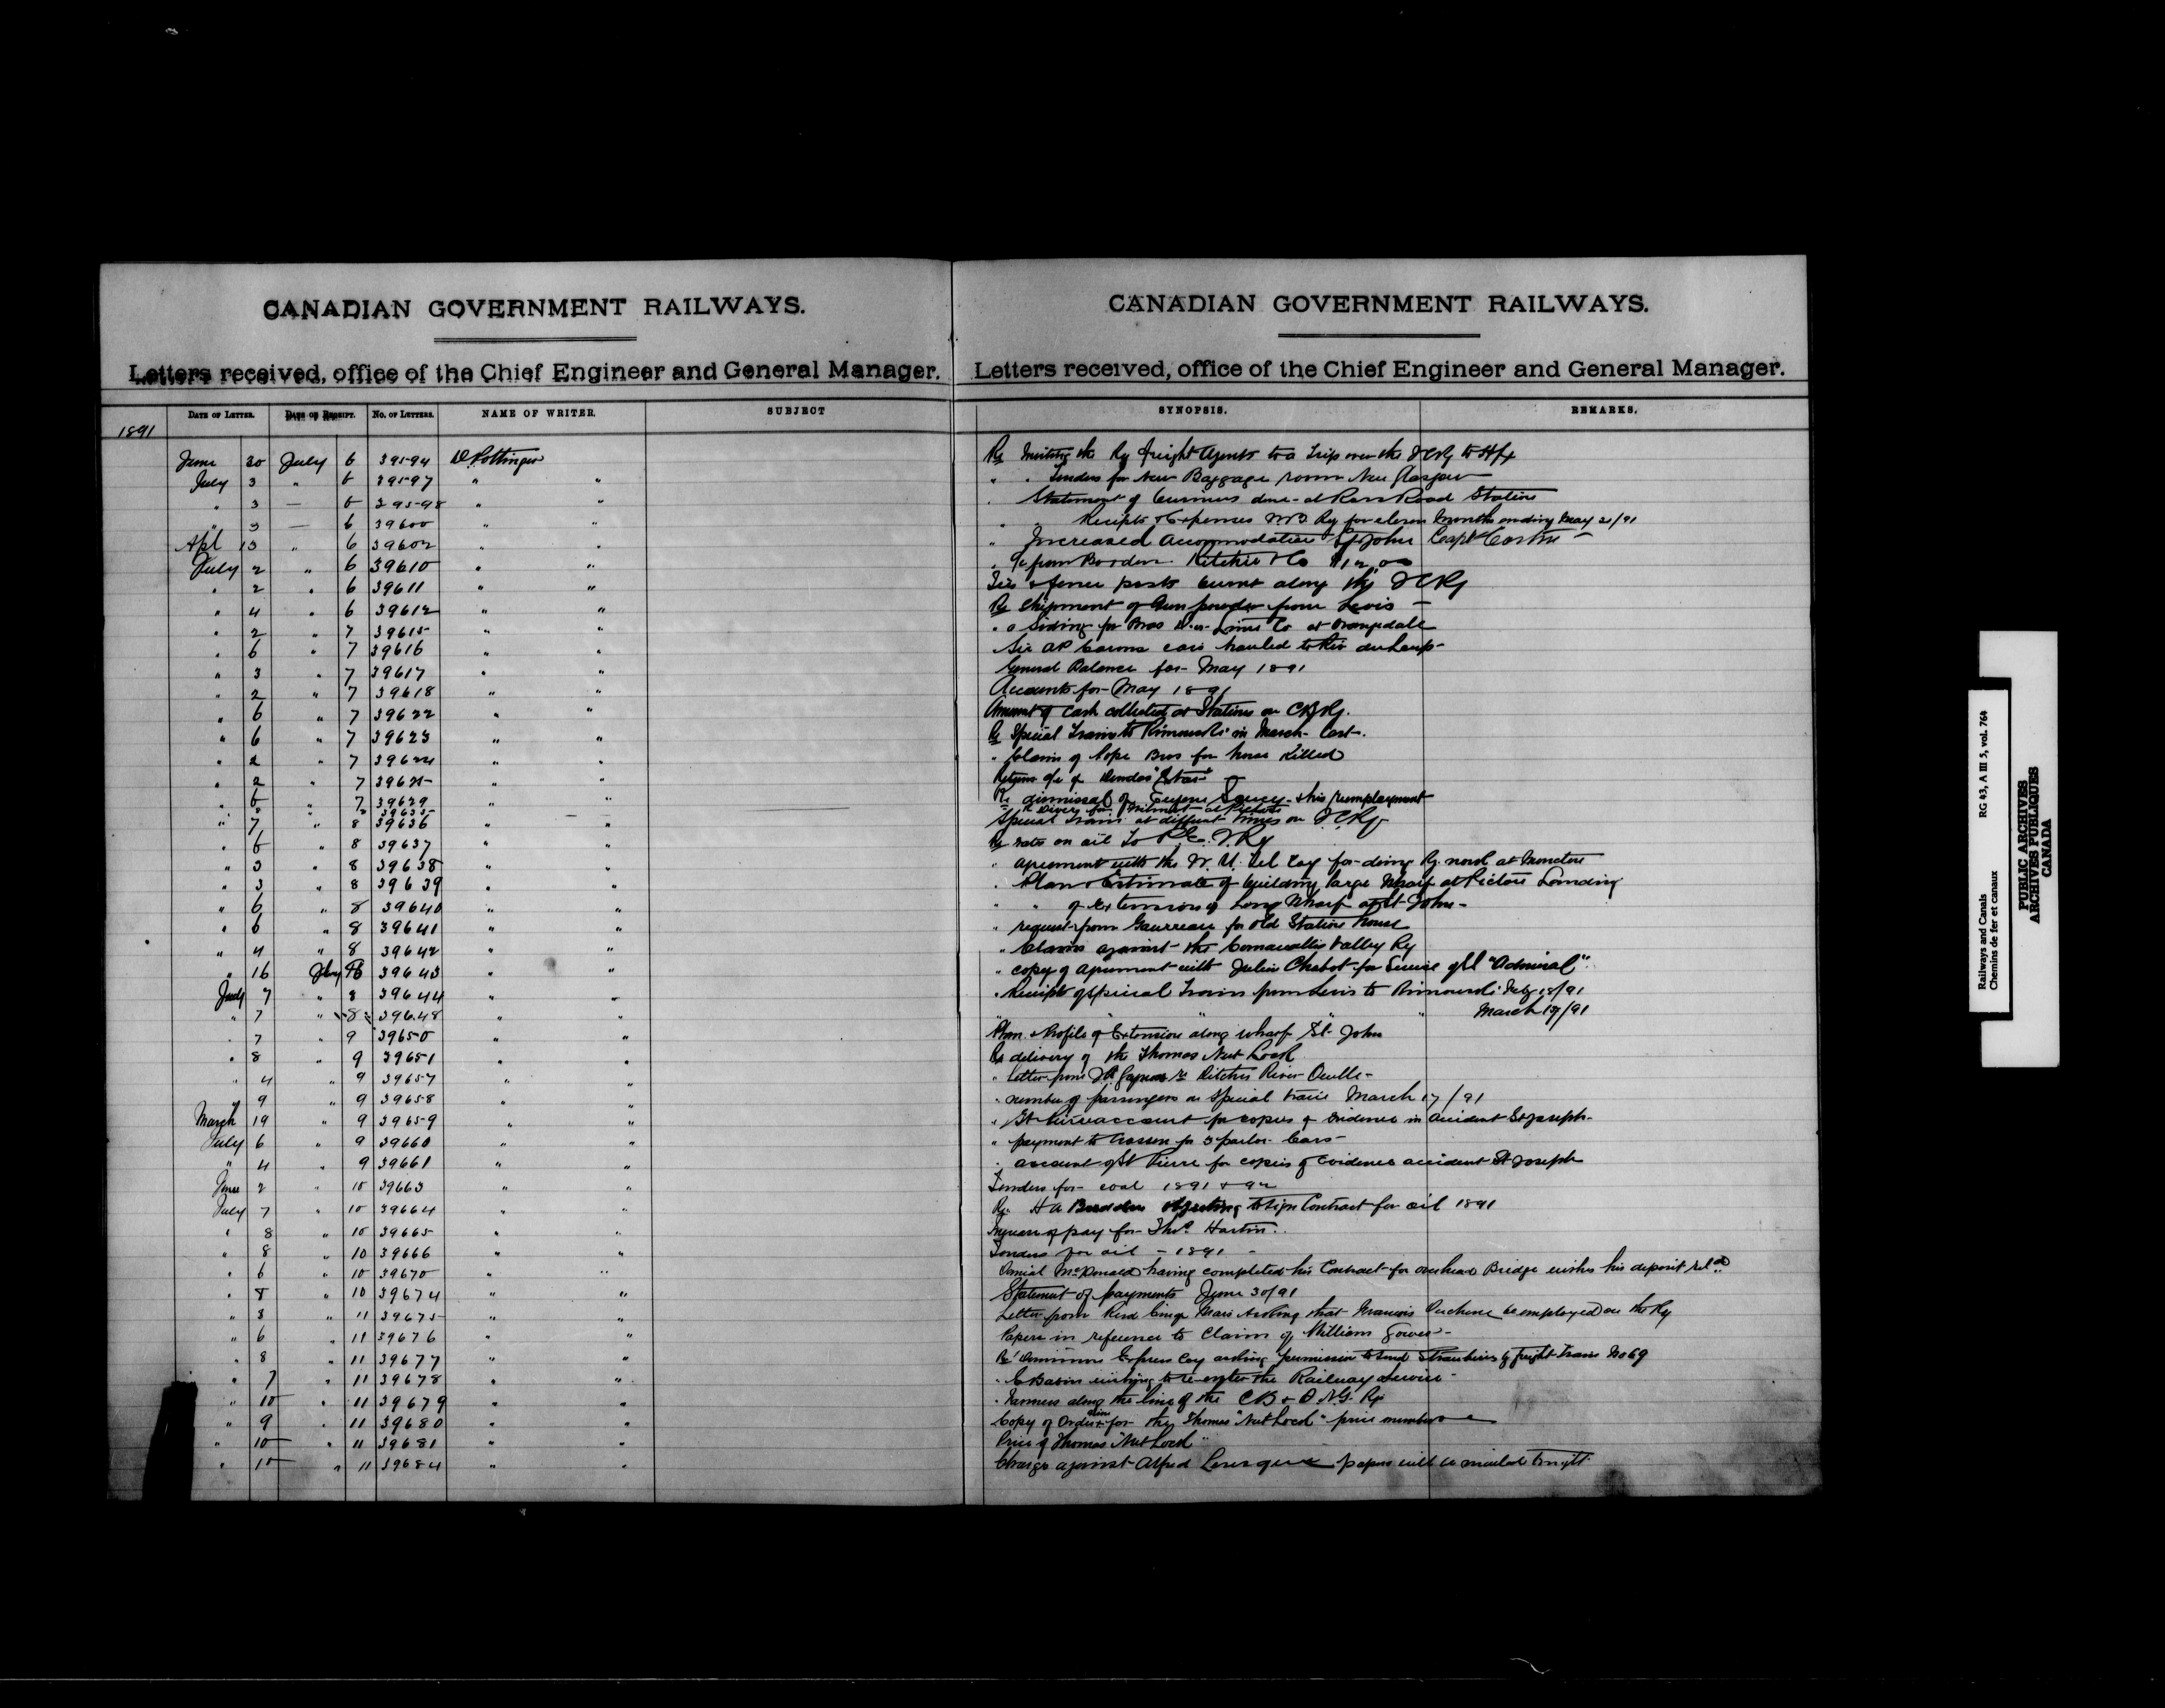 CANADIAN GOVERNMENT RAILWAYS.
Letters received, office of the Chief Engineer and General Manager.
DATE OF LETTER. DATE OF RECEIPT. No. OF LETTERS. NAME OF WRITER. SUBJECT
1891
June 30 July 6 39594 D Pottinger
July 3 " 6 39597 " "
" 3 — 6 39598 " "
" 3 — 6 39600 " "
Apl 13 " 6 39602 " "
July 2 " 6 39610 " "
" 2 " 6 39611 " "
" 4 " 6 39612 " "
" 2 " 7 39615 " "
" 6 " 7 39616 " "
" 3 " 7 39617 " "
" 2 " 7 39618 " "
" 6 " 7 39622 " "
" 6 " 7 39623 " "
" 2 " 7 39624 " "
" 2 " 7 39625 "
" 6 " 7 39629 " "
" " " 39635 — —
" 7 " 8 39636 " "
" 6 " 8 39637 " "
" 3 " 8 39638 " "
" 3 " 8 39639 " "
" 6 " 8 39640 " "
" 6 " 8 39641 " "
" 4 " 8 39642 " "
" 16 39643 " "
July 7 " 8 39644 " "
" 7 " 8 39648 " "
" 7 " 9 39650 " "
" 8 " 9 39651 " "
" 4 " 9 39657 " "
" 9 " 9 39658 " "
March 19 " 9 39659 " "
July 6 " 9 39660 " "
" 4 " 9 39661 " "
June 2 " 10 39663 " "
July 7 " 10 39664 " "
" 8 " 10 39665 " "
" 8 " 10 39666 " "
" 6 " 10 39670 " "
" 8 " 10 39674 " "
" 3 " 11 39675 " "
" 6 " 11 39676 " "
" 8 " 11 39677 " "
" 7 " 11 39678 " "
" 10 " 11 39679 " "
" 9 " 11 39680 " "
" 10 " 11 39681 " "
" 10 " 11 39684 " "
CANADIAN GOVERNMENT RAILWAYS.
Letters received, office of the Chief Engineer and General Manager.
SYNOPSIS. REMARKS.
Re Inviting the Ry freight Agents to a Trip over the ICRy to Hfx
" . Tenders for New Baggage room New Glasgow
" Statement of business done at Station
" " Receipts & Expenses Ry for eleven Months ending May 31/91
" Increased accommodation St John Capt
" from Borden Ritchie & Co $12.00
& fence posts burnt along the ICRy
Re Shipment of Gunpowder from Levis —
" a Siding for Bros Lime Co at Orangedale
Sir AP Carons cars hauled to
General Balance for May 1891
Accounts for May 1891
Amount of Cash collected at Stations on CBRy.
Re Special Train to Rimouski in March last.
" Claim of Bros for horse killed
Return of
Re dismissal of Eugene & his reemployment
Re at Pictou
Special Trains at different times on ICRy
Re rates on oil to P.E.I.Ry
" agreement with the W. U. Tel Coy for doing Ry work at Moncton
" Plan & Estimate of building large Wharf at Pictou Landing
" " of Extension of Long Wharf at St John
" request from Gauvreau for old Station house
" Claims against the Cornwallis Valley Ry
" copy of agreement with Julien Chabot for Service of St "Admiral"
" Receipts of Special Trains from Levis to Rimouski Feby 18/91
" " " March 17/91
Plan & Profile of Extension along wharf St John
Re delivery of the Thomas Nut Lock
" Letter from re Ritchie River Ouelle
" number of passengers on Special train March 17/91
" St Pierre account for copies of Evidence in Accident St Joseph
" payment to Crossen for 3 parlor Cars
" account of St Pierre for copies of Evidence accident St Joseph
Tenders for coal 1891 & 92
Re H A objecting to sign Contract for oil 1891
Increase of pay for Thos.
Tenders for oil — 1891 —
Daniel McDonald having completed his Contract for overhead Bridge wishes his deposit retd
Statement of payments June 30/91
Letter from asking that Duchene be employed on the Ry
Papers in reference to Claim of William
Re Dominion Express Coy asking permission to send Strawberries by freight train No 69
" wishing to re-enter the Railway Service
" Farmers along the line of the CB & O.N.G. Ry
Copy of Order for the Thomas "Nut Lock" price
Price of Thomas "Nut Lock"
Charge against Alfred Levesque papers will be mailed tonight
Railways and Canals RG 43, A III 5, vol. 764
Chemins de fer et canaux
PUBLIC ARCHIVES
ARCHIVES PUBLIQUES
CANADA